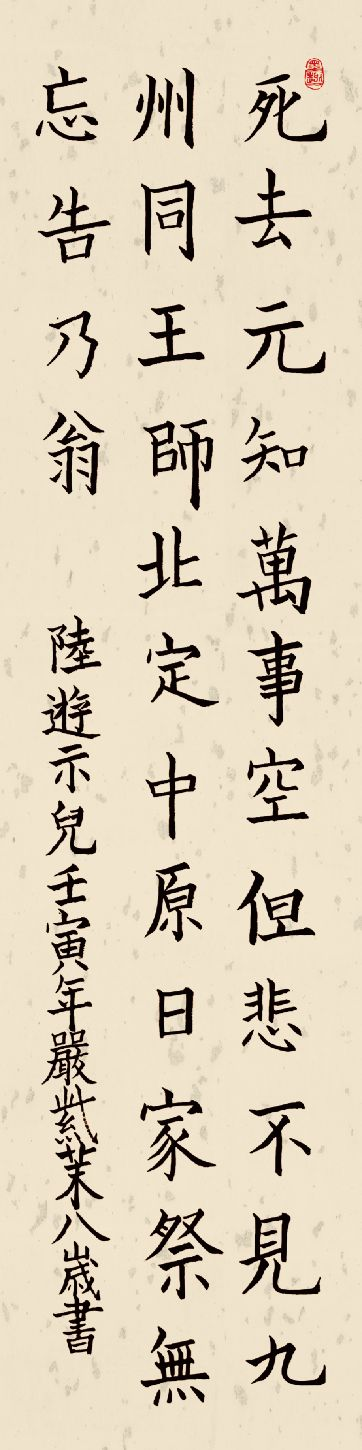 死去元知萬事空但悲不見九
州同王師北定中原日家祭無
忘告乃翁 陸遊示兒壬寅年嚴紫茉八歲書